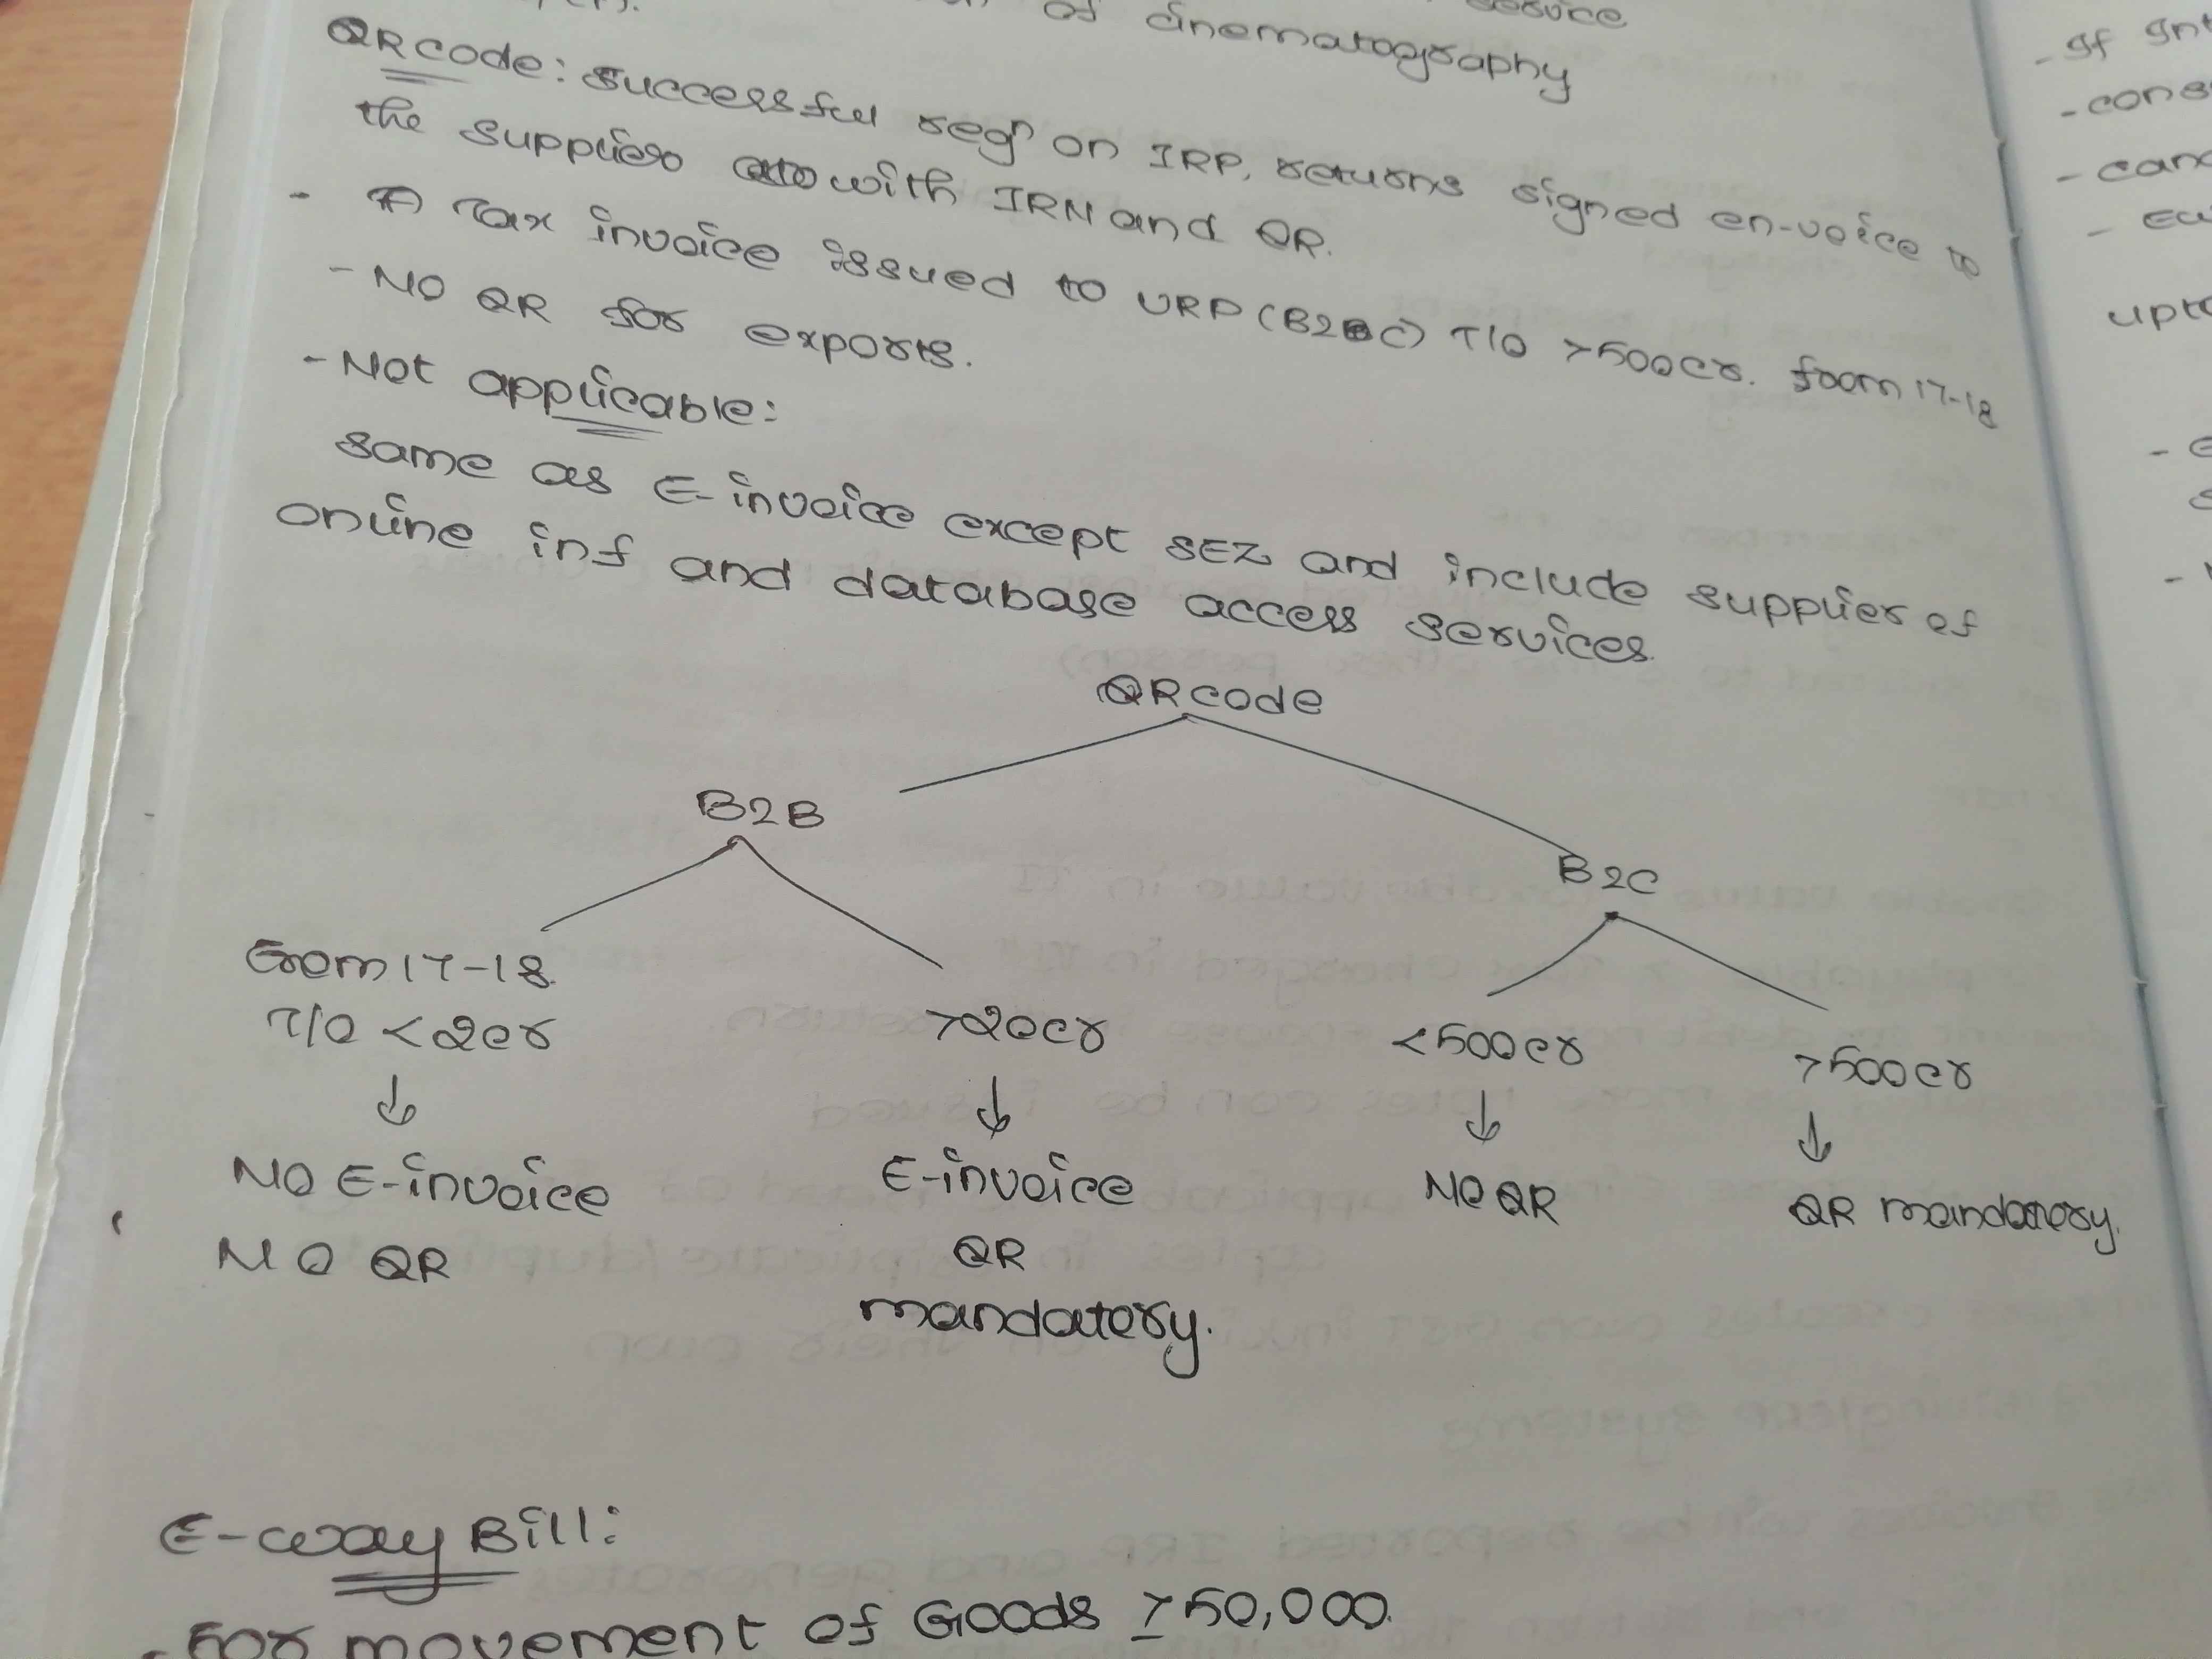 of cinematography
service
QR code: Successful regn on IRP, returns signed en-voice to
the supplier with IRN and QR.
- A Tax invoice issued to URP (B2C) T/O >500cr. from 17-18
- NO QR for exports.
- Not applicable:
same as E-invoice except SEZ and include supplier of
online inf and database access services.
QR code
B2B
B2C
From 17-18
T/O <20cr
>20cr
<500cr
>500cr
NO E-invoice
E-invoice
NO QR
QR mandatory.
NO QR
QR
mandatory.
E-way Bill:
- For movement of Goods ≥50,000.
- If
- cons
- canc
upto